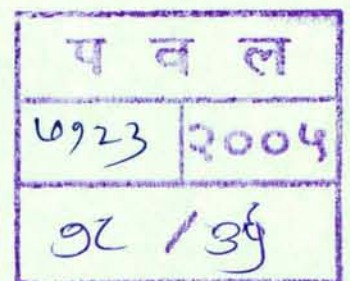 प व ल
७१२३ २००५
१८ /